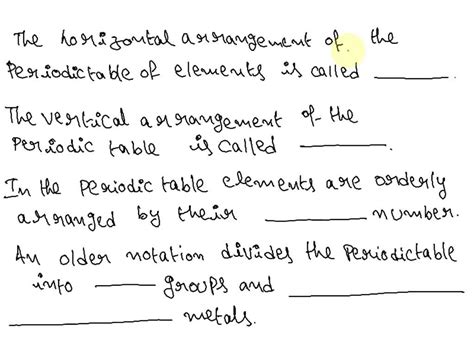 The horizontal arrangement of. the
Periodictable of elements is called ______.
The vertical arrangement of the
Periodic table is called ______.
In the periodic table elements are orderly
arranged by their ______ number.
An older notation divides the Periodictable
into ____ groups and ____________
____________ metals.